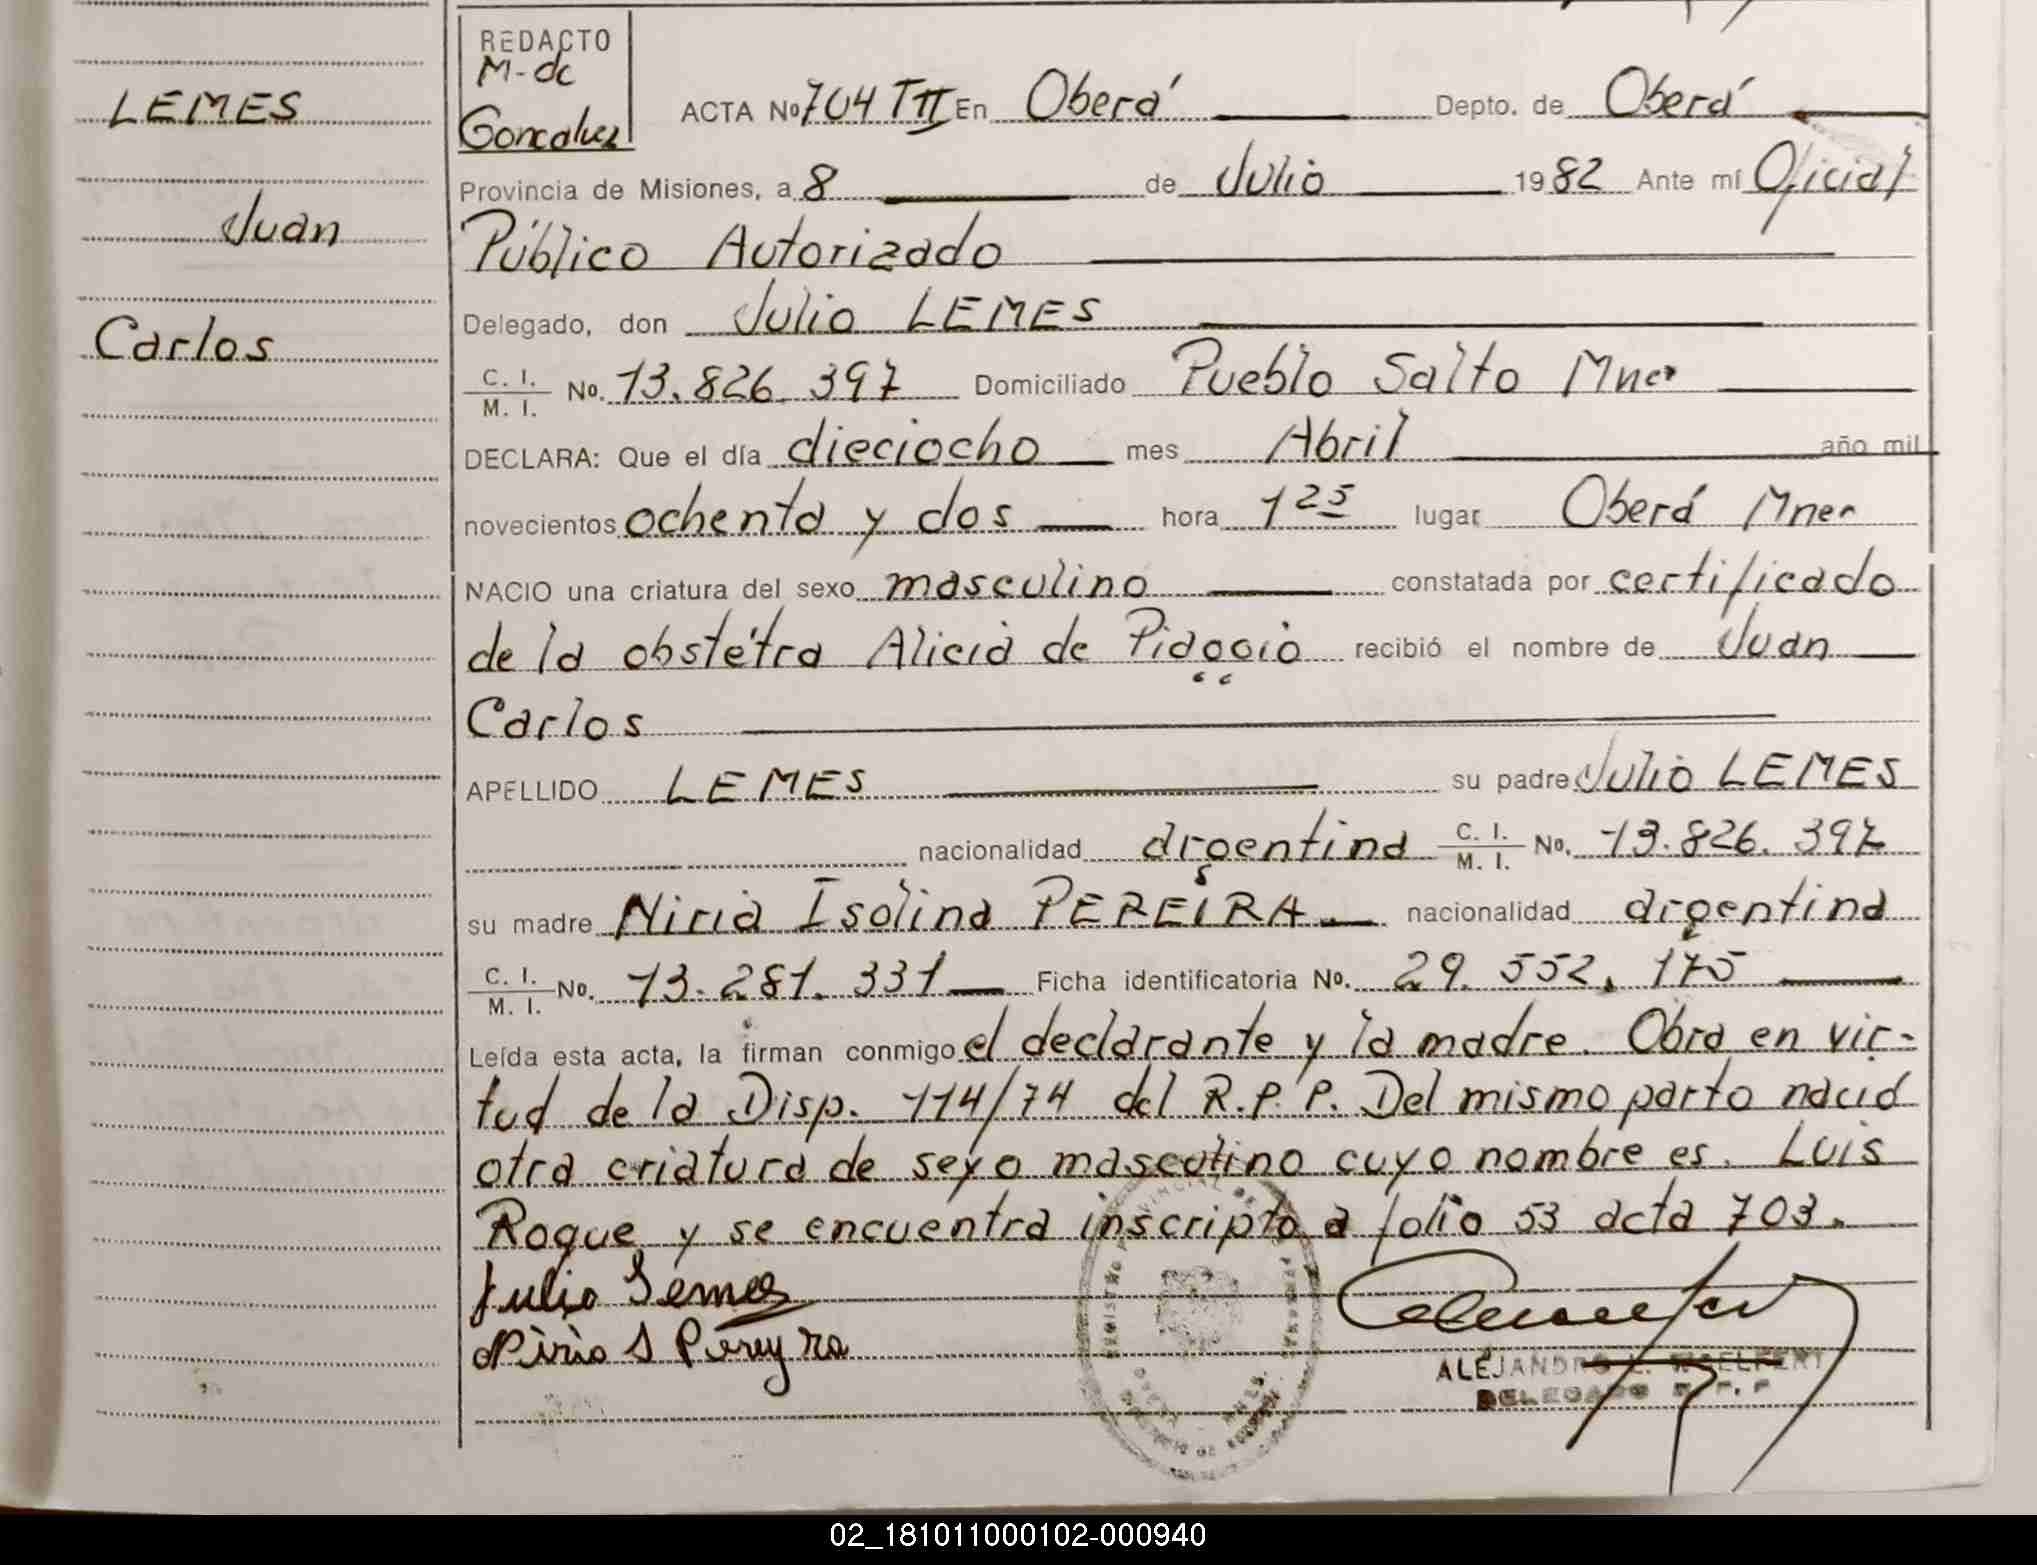 LEMES
Juan
Carlos
REDACTO
M-de
Goncalvez
ACTA No 704 TII En Oberá Depto. de Oberá
Provincia de Misiones, a 8 de Julio 1982 Ante mí Oficial
Público Autorizado
Delegado, don Julio LEMES
C. I. / M. I. No. 13.826.397 Domiciliado Pueblo Salto Mnes
DECLARA: Que el día dieciocho mes Abril año mil
novecientos ochenta y dos hora 1 25 lugar Oberá Mnes
NACIO una criatura del sexo masculino constatada por certificado
de la obstétra Alicia de Piaggio recibió el nombre de Juan
Carlos
APELLIDO LEMES su padre Julio LEMES
nacionalidad argentina C. I. / M. I. No. 13.826.397
su madre Niria Isolina PEREIRA nacionalidad argentina
C. I. / M. I. No. 13.281.331 Ficha identificatoria No. 29.552.175
Leída esta acta, la firman conmigo el declarante y la madre. Obra en vir-
tud de la Disp. 114/74 del R.P.P. Del mismo parto nació
otra criatura de sexo masculino cuyo nombre es. Luis
Roque y se encuentra inscripto a folio 53 acta 703.
Julio Lemes
Niria I Pereyra
ALEJANDRO
DELEGADO
02_181011000102-000940